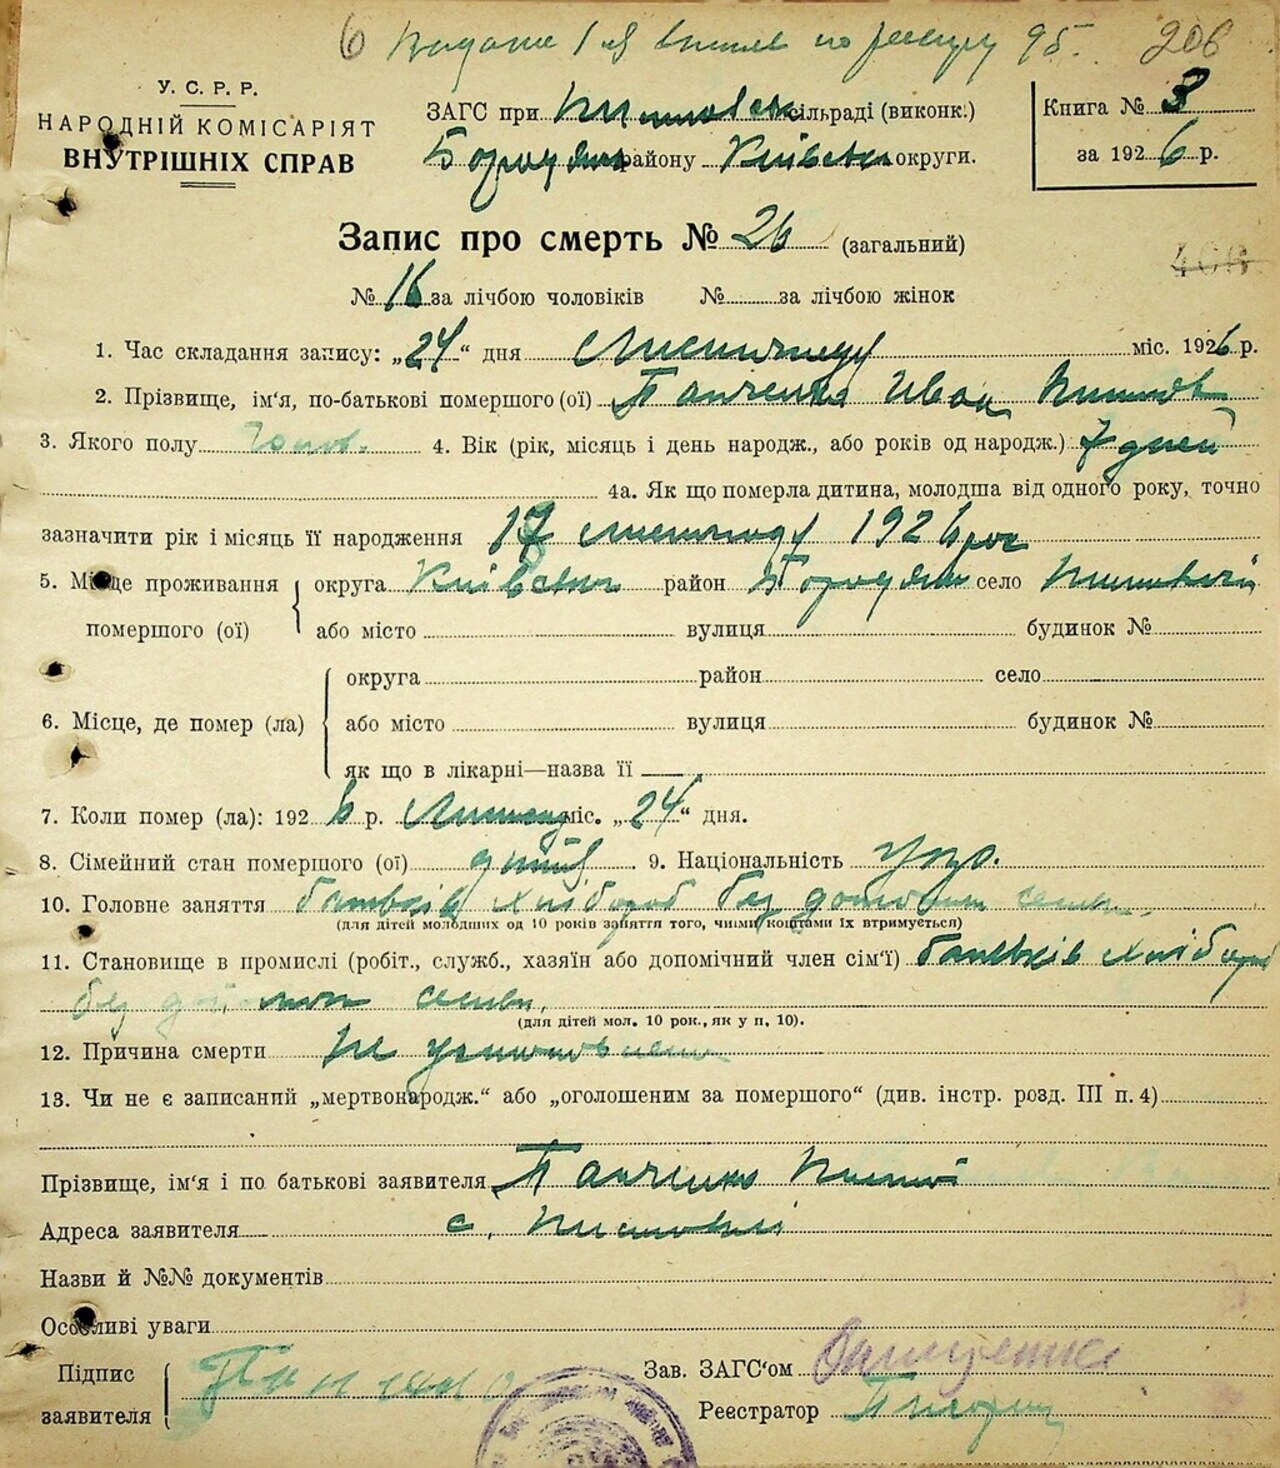 6 206
У. С. Р. Р.
НАРОДНІЙ КОМІСАРІЯТ
ВНУТРІШНІХ СПРАВ
ЗАГС при сільраді (виконк.)
Бородян району Київськ округи.
Книга № 3
за 1926 р.
Запис про смерть № 26 (загальний)
№ 16 за лічбою чоловіків № за лічбою жінок
1. Час складання запису: „24“ дня Листопаду міс. 1926 р.
2. Прізвище, ім‘я, по-батькові помершого (ої) Панченко Иван
3. Якого полу Чолов. 4. Вік (рік, місяць і день народж., або років од народж.) 7 дней
4а. Як що померла дитина, молодша від одного року, точно
зазначити рік і місяць її народження 17 листопаду 1926 рок
5. Місце проживання помершого (ої) округа Київськ район Бородян село
або місто вулиця будинок №
6. Місце, де помер (ла) округа район село
або місто вулиця будинок №
як що в лікарні—назва її
7. Коли помер (ла): 1926 р. Листопад міс. „24“ дня.
8. Сімейний стан помершого (ої) 9. Національність укр.
10. Головне заняття батьків хлібороб без семьи
(для дітей молодших од 10 років заняття того, чиїми коштами їх втримується)
11. Становище в промислі (робіт., служб., хазяїн або допомічний член сім‘ї) батьків хлібороб
без семьи,
(для дітей мол. 10 рок., як у п. 10).
12. Причина смерти не установлена
13. Чи не є записаний „мертвонародж.“ або „оголошеним за помершого“ (див. інстр. розд. III п. 4)
Прізвище, ім‘я і по батькові заявителя Панченко
Адреса заявителя с.
Назви й №№ документів
Особливі уваги
Підпис заявителя
Зав. ЗАГС‘ом
Реєстратор